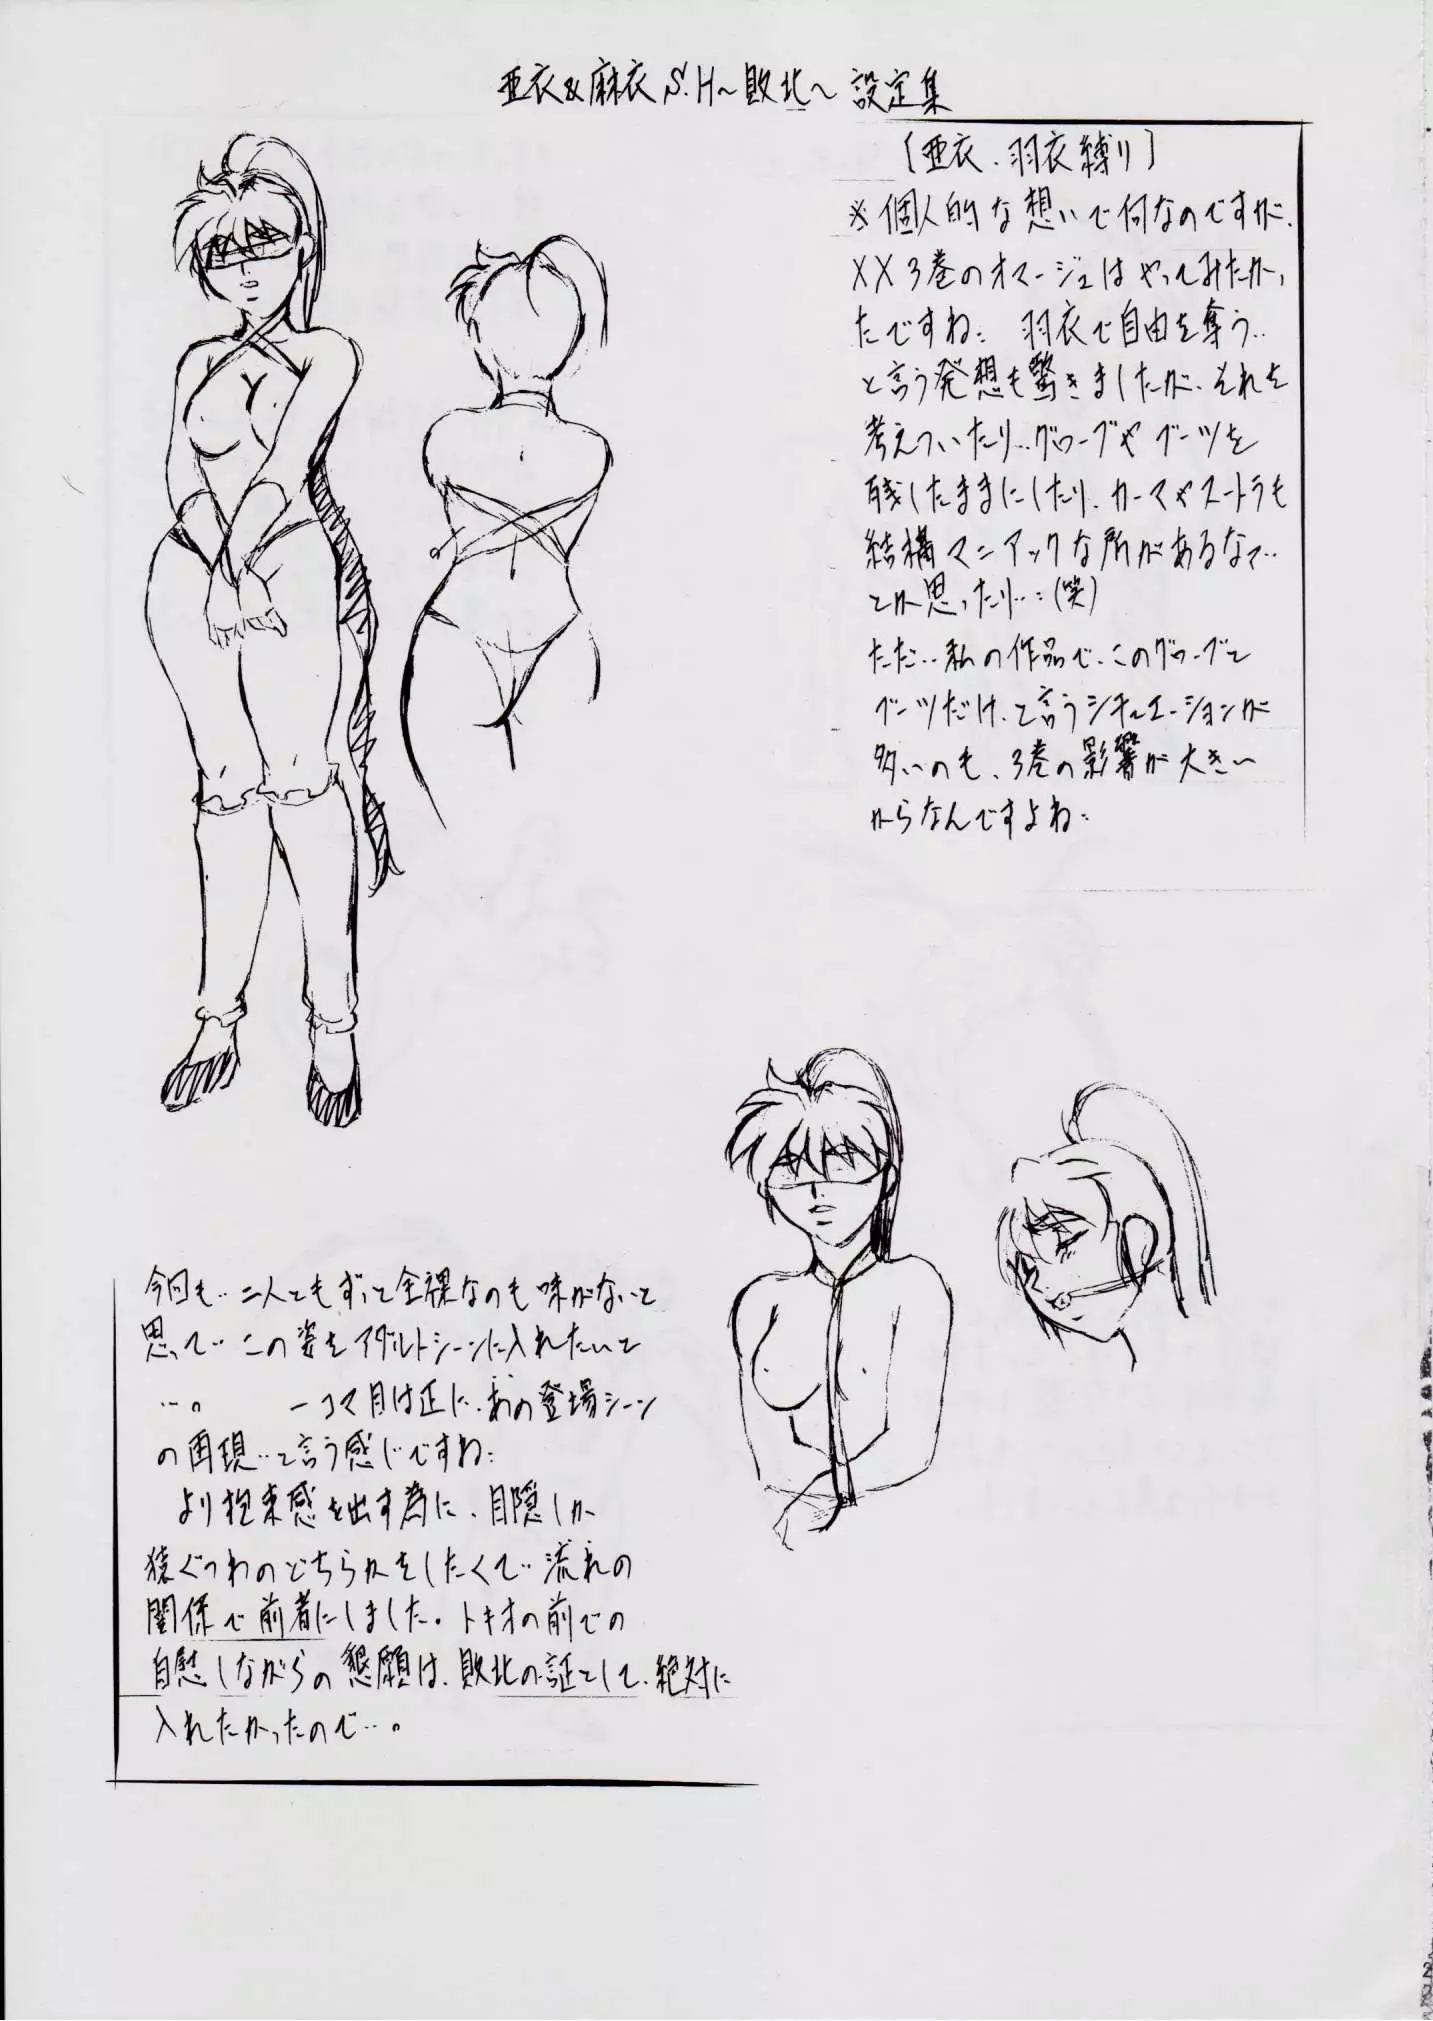 亜衣&麻衣 S.H~敗北~ 設定集
[亜衣、羽衣縛り]
※個人的な想いで何なのですが、
XX3巻のオマージュはやってみたかっ
たですね: 羽衣で自由を奪う‥
と言う発想も驚きましたが、それを
考えついたり‥グローブやブーツを
残したままにしたり、カーマやスートラも
結構マニアックな所があるなって‥
とか思ったり‥:(笑)
ただ‥私の作品で、このグローブと
ブーツだけ、と言うシチュエーションが
多いのも、3巻の影響が大きい
からなんですよね:
今回も‥二人ともずっと全裸なのも味がないと
思って‥この姿をアダルトシーンに入れたいて
‥。 一コマ目は正に‥あの登場シーン
の再現‥と言う感じですね:
より拘束感を出す為に、目隠しか
猿ぐつわのどちらかをしたくて‥流れの
関係で前者にしました。トキオの前での
自慰しながらの懇願は、敗北の証として、絶対に
入れたかったので‥。